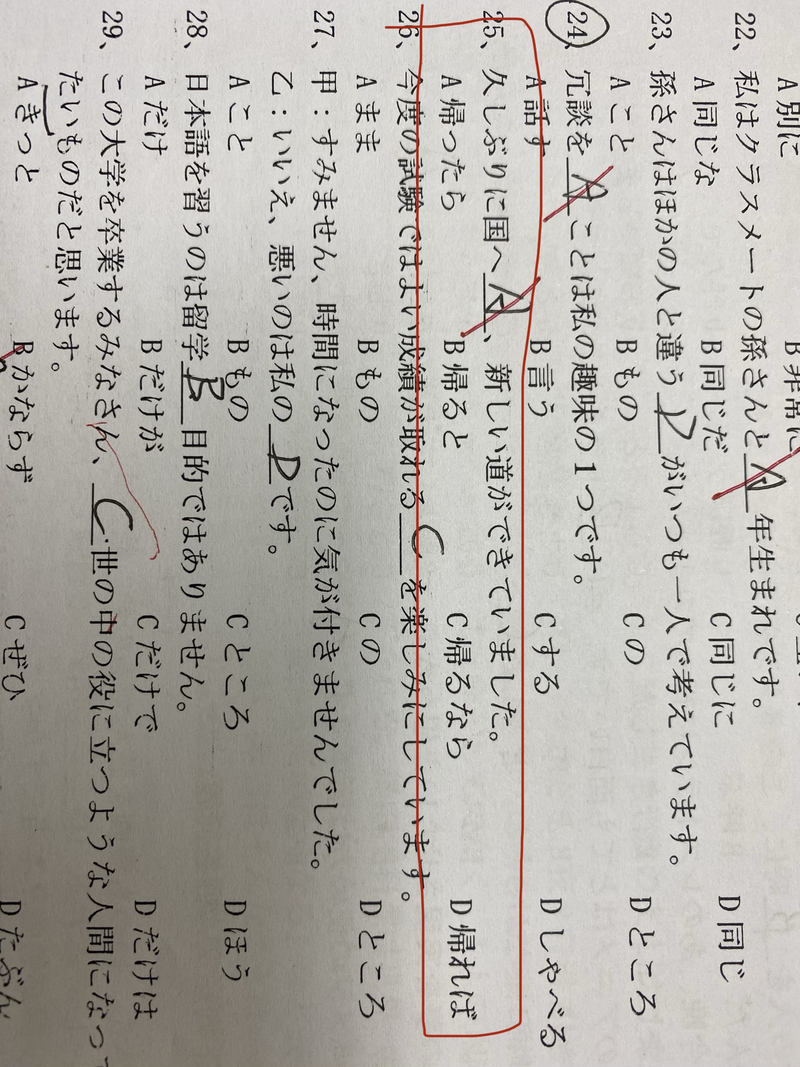 A 別に
B 非常に
22、私はクラスメートの孫さんと A 年生まれです。
A 同じな B 同じだ C 同じに D 同じ
23、孫さんはほかの人と違う D がいつも一人で考えています。
A こと B もの C の D ところ
24、冗談を A ことは私の趣味の1つです。
A 話す B 言う C する D しゃべる
25、久しぶりに国へ A 、新しい道ができていました。
A 帰ったら B 帰ると C 帰るなら D 帰れば
26、今度の試験ではよい成績が取れる C を楽しみにしています。
A まま B もの C の D ところ
27、甲：すみません、時間になったのに気が付きませんでした。
乙：いいえ、悪いのは私の D です。
A こと B もの C ところ D ほう
28、日本語を習うのは留学 B 目的ではありません。
A だけ B だけが C だけで D だけは
29、この大学を卒業するみなさん、 C 世の中の役に立つような人間になっ
たいものだと思います。
A きっと B かならず C ぜひ D たぶん